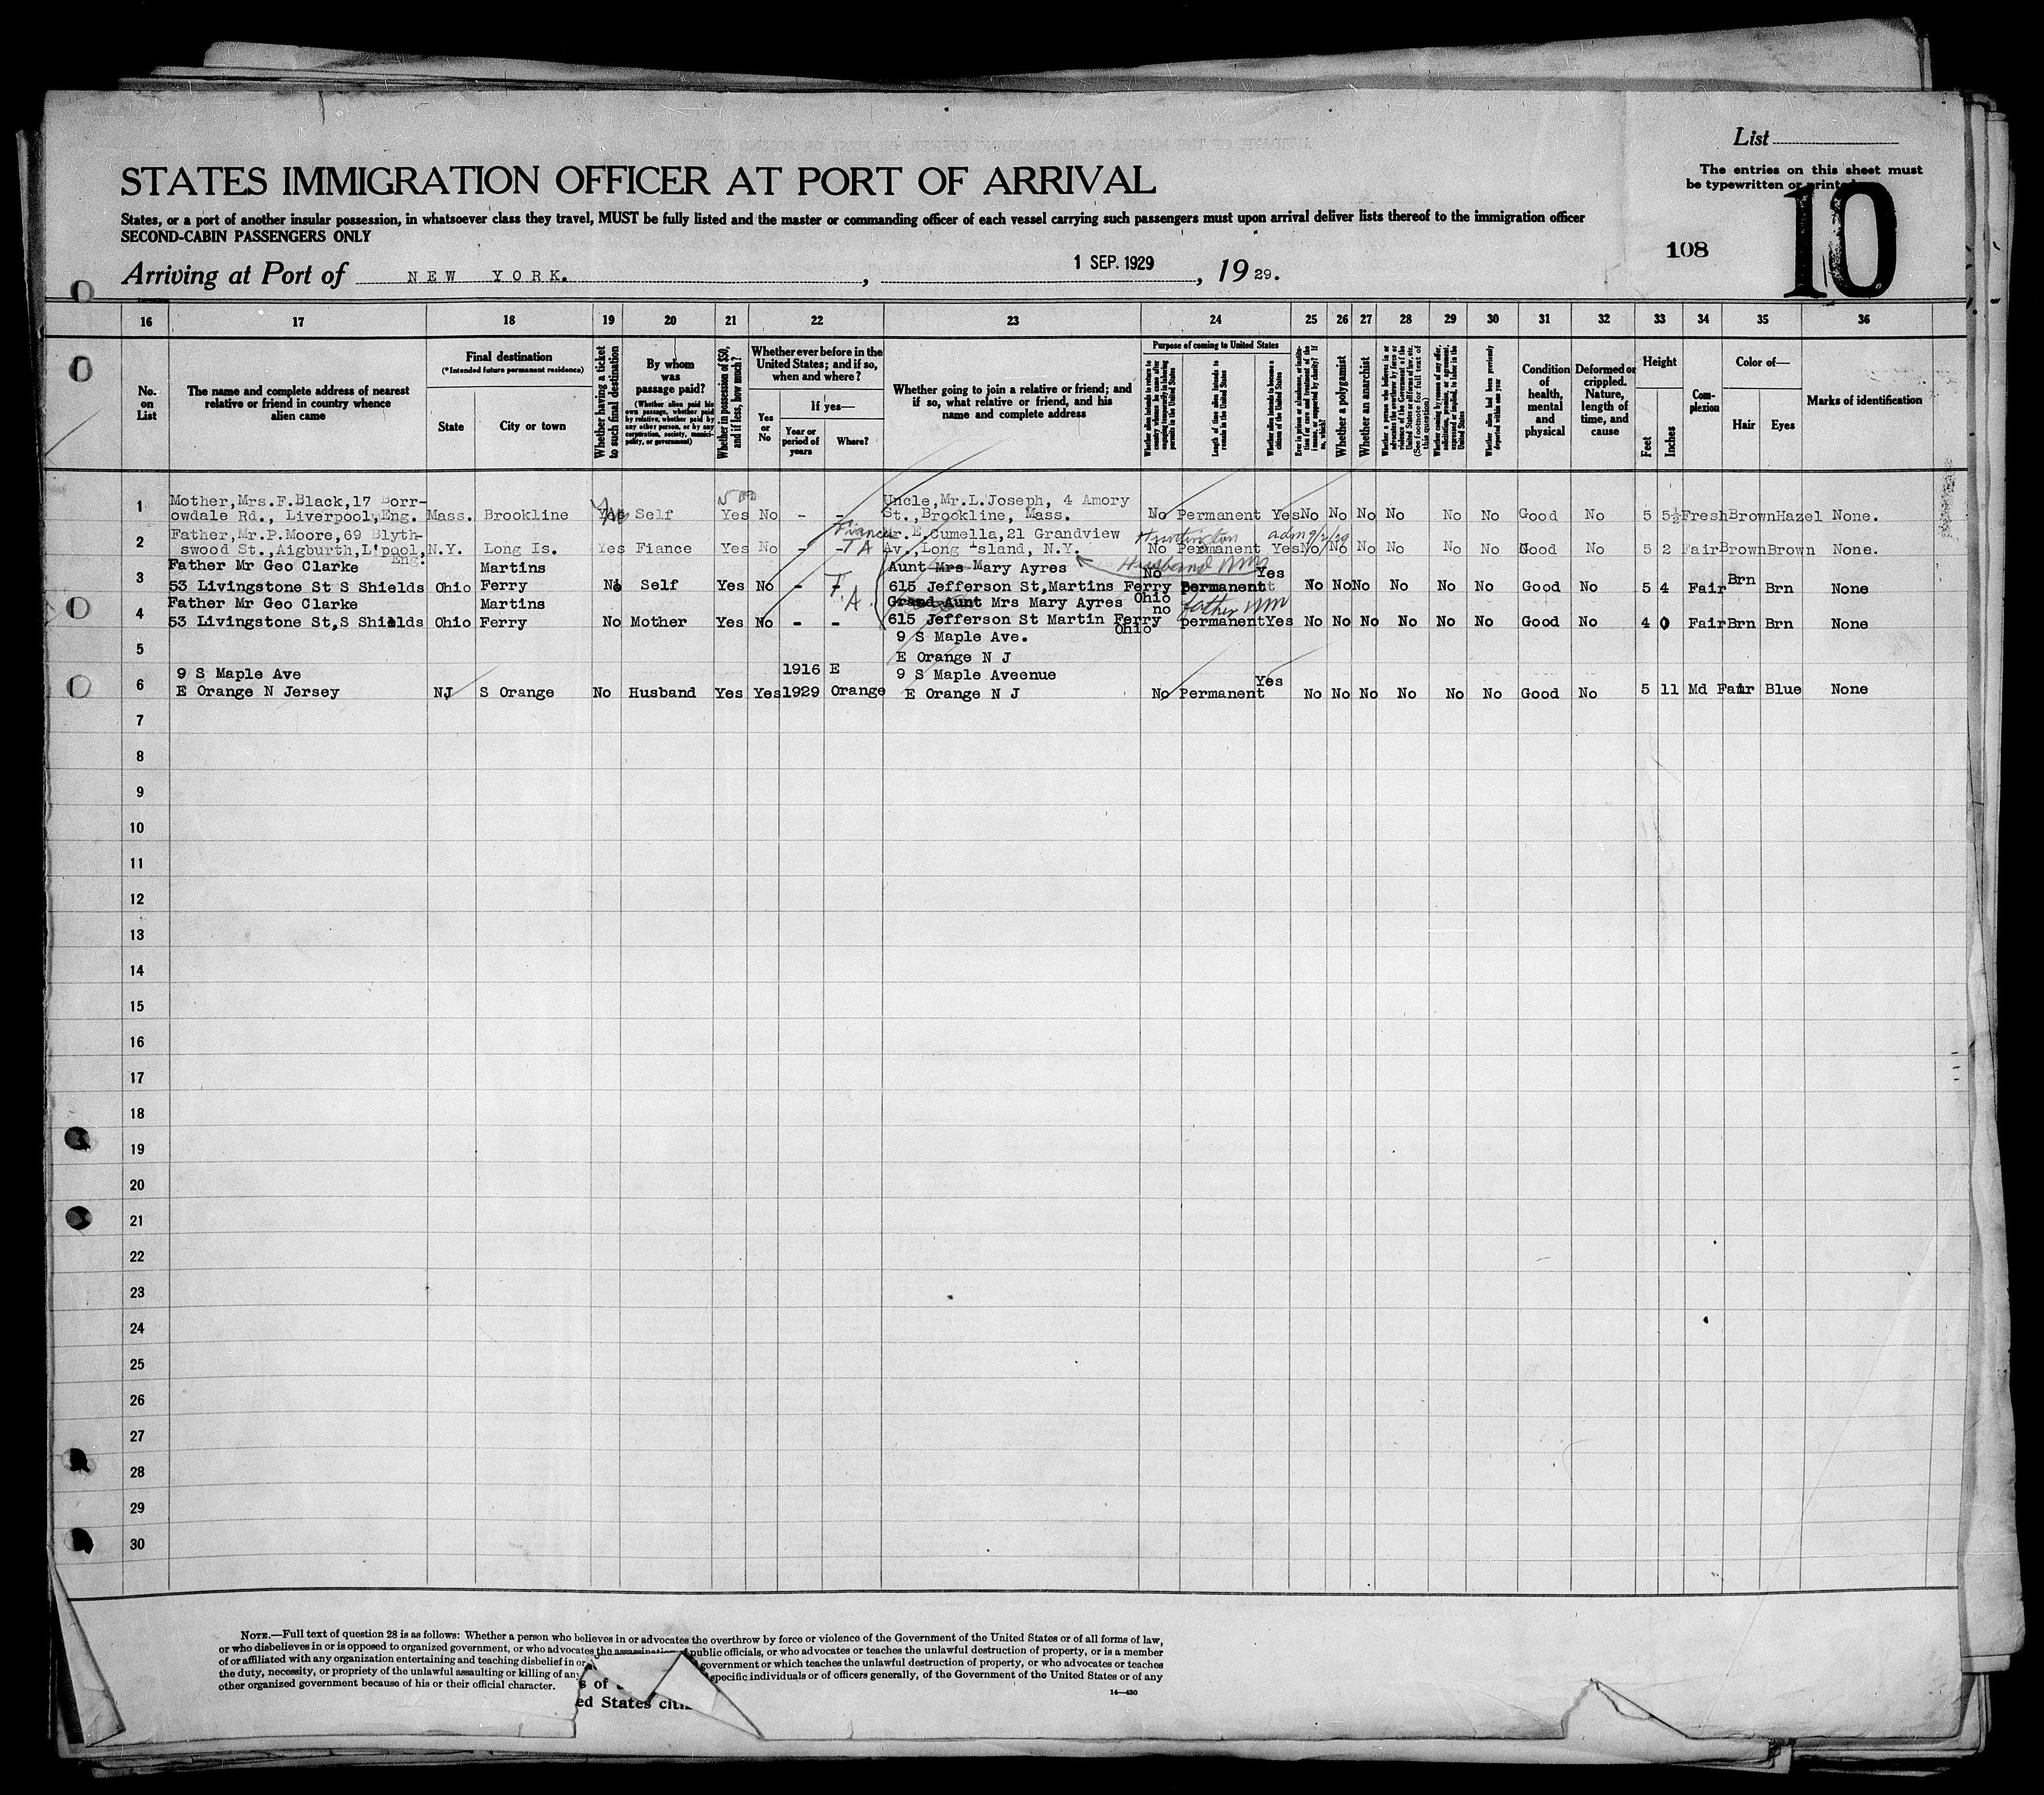 List
The entries on this sheet must
be typewritten or printed
10
108
STATES IMMIGRATION OFFICER AT PORT OF ARRIVAL
States, or a port of another insular possession, in whatsoever class they travel, MUST be fully listed and the master or commanding officer of each vessel carrying such passengers must upon arrival deliver lists thereof to the immigration officer
SECOND-CABIN PASSENGERS ONLY
Arriving at Port of NEW YORK. , 1 SEP. 1929 , 19 29.
16 17 18 19 20 21 22 23 24 25 26 27 28 29 30 31 32 33 34 35 36
No. on List
The name and complete address of nearest relative or friend in country whence alien came
Final destination
(*Intended future permanent residence)
State
City or town
Whether having a ticket to such final destination
By whom was passage paid?
(Whether alien paid his own passage, whether paid by relative, whether paid by any other person, or by any corporation, society, municipality, or government)
Whether in possession of $50, and if less, how much?
Whether ever before in the United States; and if so, when and where?
Yes or No
If yes—
Year or period of years
Where?
Whether going to join a relative or friend; and if so, what relative or friend, and his name and complete address
Purpose of coming to United States
Length of time alien intends to remain in the United States
Whether alien intends to become a citizen of the United States
Whether a polygamist
Whether an anarchist
Whether alien had been previously deported within one year
Condition of health, mental and physical
Deformed or crippled. Nature, length of time, and cause
Height
Feet
Inches
Complexion
Color of—
Hair
Eyes
Marks of identification
1 Mother,Mrs.F.Black,17 Borr-
owdale Rd., Liverpool,Eng. Mass. Brookline Yes Self 500 Yes No - - Uncle,Mr.L.Joseph, 4 Amory
St.,Brookline, Mass. No Permanent Yes No No No No No No Good No 5 5½ Fresh Brown Hazel None.
2 Father,Mr.P.Moore,69 Blyth-
swood St.,Aigburth,L'pool, Eng. N.Y. Long Is. Yes Fiance Yes No - - T A Fiance Mr.E.Cumella,21 Grandview
Av.,Long Island, N.Y. Huntington adm 9/2/29 No Permanent Yes No No No No No No Good No 5 2 Fair Brown Brown None.
3 Father Mr Geo Clarke
53 Livingstone St S Shields Ohio Martins Ferry No Self Yes No - T.A. Aunt Mrs Mary Ayres Husband
615 Jefferson St,Martins Ferry Ohio No Permanent Yes No No No No No No Good No 5 4 Fair Brn Brn None
4 Father Mr Geo Clarke
53 Livingstone St,S Shields Ohio Martins Ferry No Mother Yes No - - Grand Aunt Mrs Mary Ayres father
615 Jefferson St Martin Ferry Ohio no permanent Yes No No No No No No Good No 4 0 Fair Brn Brn None
5 9 S Maple Ave.
E Orange N J
6 9 S Maple Ave
E Orange N Jersey NJ S Orange No Husband Yes Yes 1916 1929 E Orange 9 S Maple Aveenue
E Orange N J No Permanent Yes No No No No No No Good No 5 11 Md Fair Blue None
7
8
9
10
11
12
13
14
15
16
17
18
19
20
21
22
23
24
25
26
27
28
29
30
NOTE.—Full text of question 28 is as follows: Whether a person who believes in or advocates the overthrow by force or violence of the Government of the United States or of all forms of law,
or who disbelieves in or is opposed to organized government, or who advocates the assassination public officials, or who advocates or teaches the unlawful destruction of property, or is a member
of or affiliated with any organization entertaining and teaching disbelief in or government or which teaches the unlawful destruction of property, or who advocates or teaches
the duty, necessity, or propriety of the unlawful assaulting or killing of any specific individuals or of officers generally, of the Government of the United States or of any
other organized government because of his or their official character.
14—430
s of
ed States